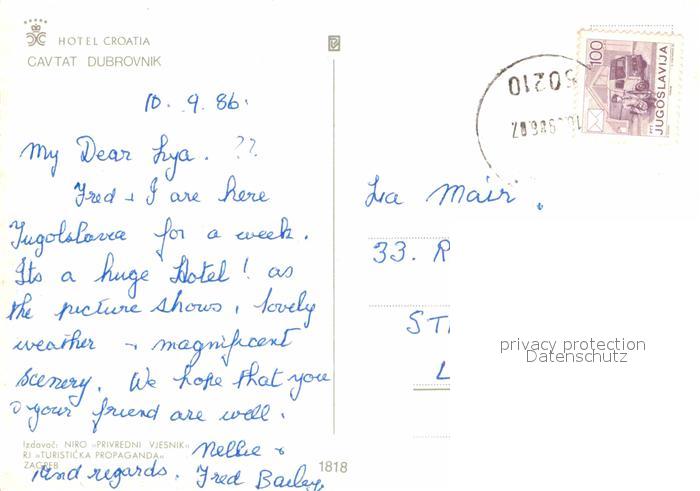 HOTEL CROATIA
CAVTAT DUBROVNIK
10. 9. 86.
My Dear Lya. ??
Fred + I are here
Jugoslavia for a week.
Its a huge Hotel! as
the picture shows, lovely
weather + magnificent
scenery. We hope that you
& your friend are well.
Nellie &
Kind regards. Fred Bailey
Izdavač: NIRO »PRIVREDNI VJESNIK«
RJ »TURISTIČKA PROPAGANDA«
ZAGREB
1818
100
PTT JUGOSLAVIJA
50210
Mair.
33. R
ST
L
privacy protection
Datenschutz